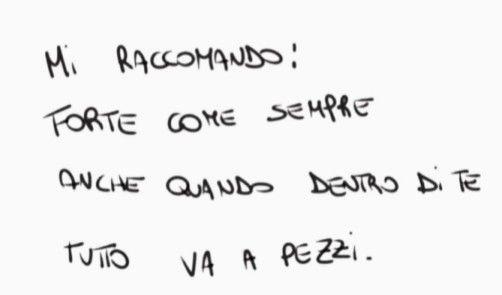 Mi RACCOMANDO!
FORTE COME SEMPRE
ANCHE QUANDO DENTRO Di TE
TUTTO VA A PEZZi.